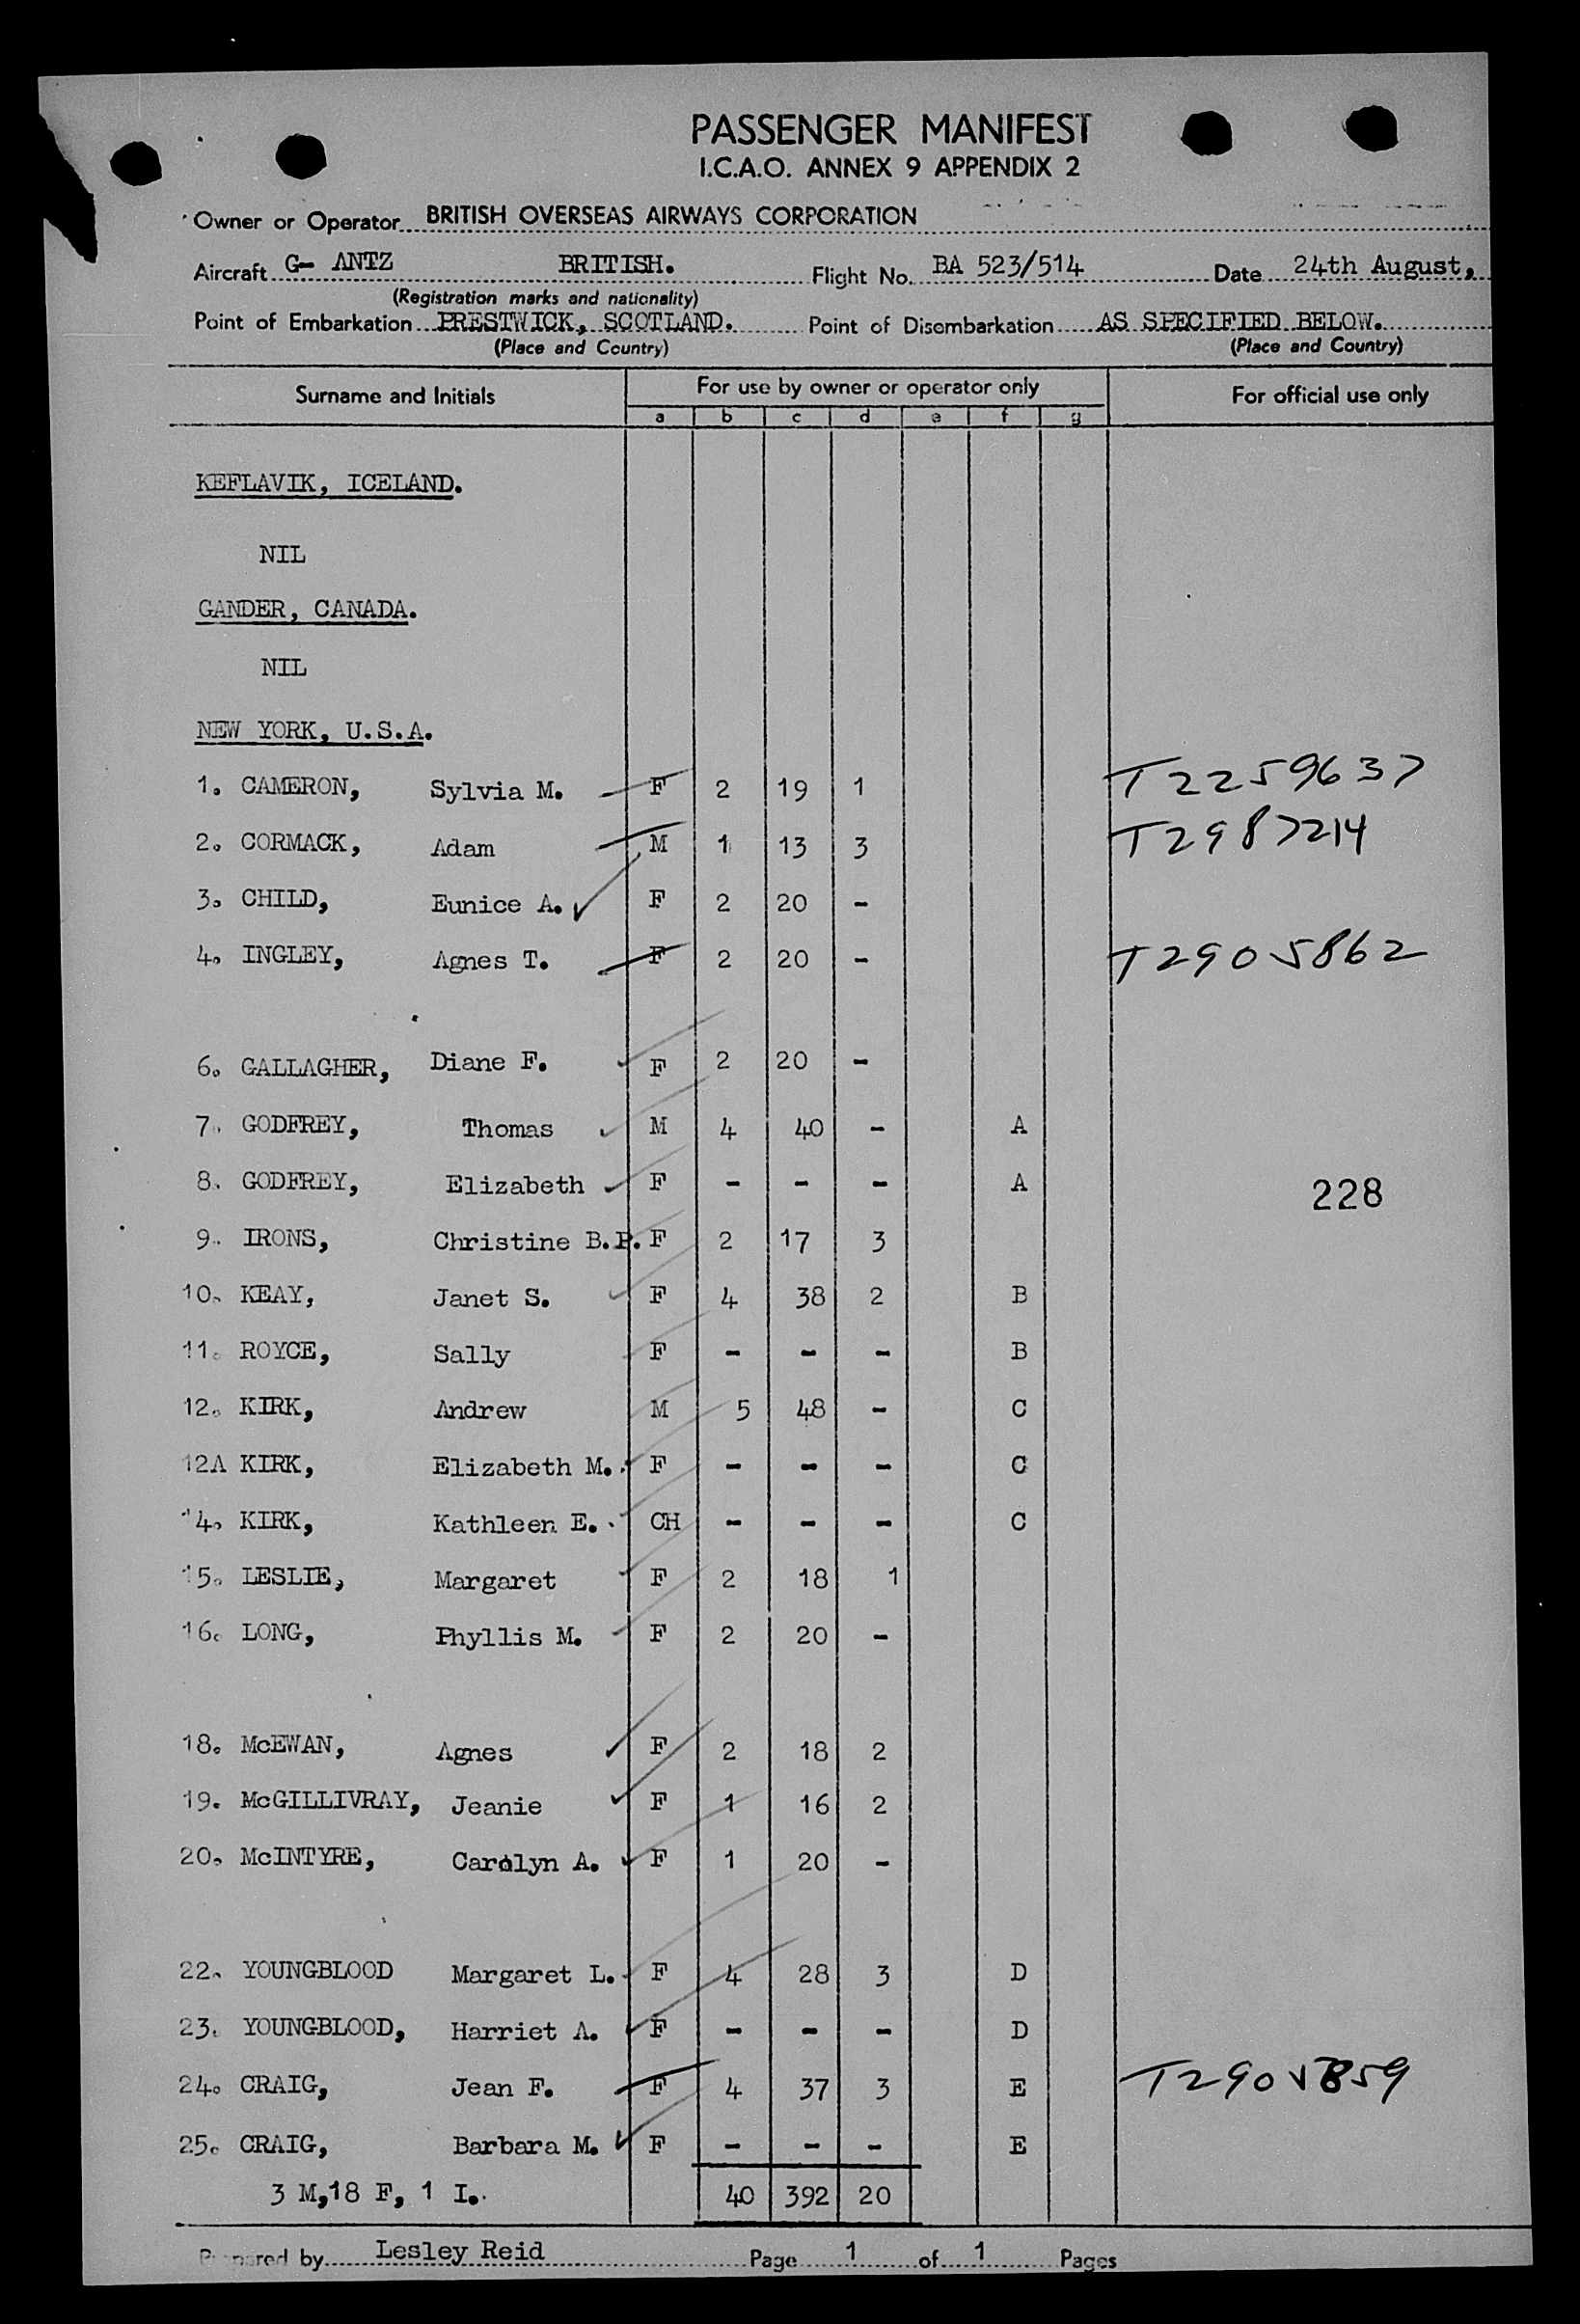 PASSENGER MANIFEST
I.C.A.O. ANNEX 9 APPENDIX 2
Owner or Operator BRITISH OVERSEAS AIRWAYS CORPORATION
Aircraft G- ANTZ BRITISH. Flight No. BA 523/514 Date 24th August,
(Registration marks and nationality)
Point of Embarkation PRESTWICK, SCOTLAND. Point of Disembarkation AS SPECIFIED BELOW.
(Place and Country) (Place and Country)
Surname and Initials For use by owner or operator only For official use only
a b c d e f g
KEFLAVIK, ICELAND.
NIL
GANDER, CANADA.
NIL
NEW YORK, U.S.A.
1. CAMERON, Sylvia M. F 2 19 1 T2259637
2. CORMACK, Adam M 1 13 3 T2987214
3. CHILD, Eunice A. F 2 20 -
4. INGLEY, Agnes T. F 2 20 - T2905862
6. GALLAGHER, Diane F. F 2 20 -
7. GODFREY, Thomas M 4 40 - A
8. GODFREY, Elizabeth F - - - A
228
9. IRONS, Christine B.P. F 2 17 3
10. KEAY, Janet S. F 4 38 2 B
11. ROYCE, Sally F - - - B
12. KIRK, Andrew M 5 48 - C
12A KIRK, Elizabeth M. F - - - C
14. KIRK, Kathleen E. CH - - - C
15. LESLIE, Margaret F 2 18 1
16. LONG, Phyllis M. F 2 20 -
18. McEWAN, Agnes F 2 18 2
19. McGILLIVRAY, Jeanie F 1 16 2
20. McINTYRE, Carolyn A. F 1 20 -
22. YOUNGBLOOD Margaret L. F 4 28 3 D
23. YOUNGBLOOD, Harriet A. F - - - D
24. CRAIG, Jean F. F 4 37 3 E T2905859
25. CRAIG, Barbara M. F - - - E
3 M,18 F, 1 I. 40 392 20
Prepared by Lesley Reid Page 1 of 1 Pages